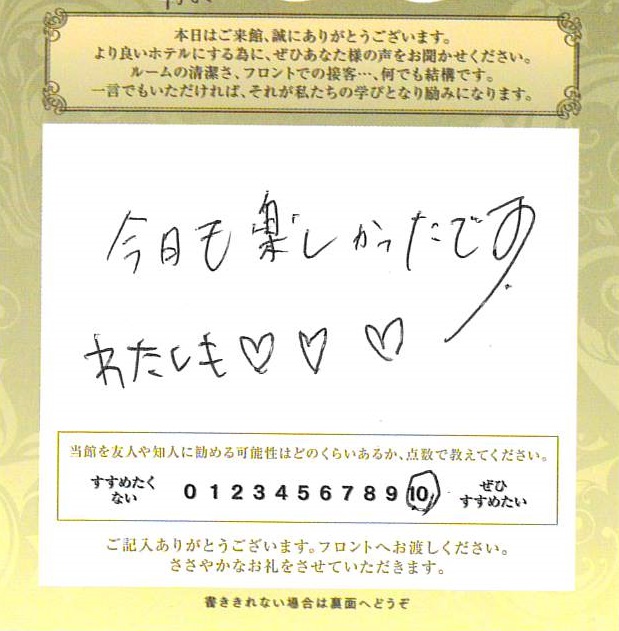 本日はご来館、誠にありがとうございます。
より良いホテルにする為に、ぜひあなた様の声をお聞かせください。
ルームの清潔さ、フロントでの接客…、何でも結構です。
一言でもいただければ、それが私たちの学びとなり励みになります。
今日も楽しかったです
わたしも♡♡♡
当館を友人や知人に勧める可能性はどのくらいあるか、点数で教えてください。
すすめたくない 0 1 2 3 4 5 6 7 8 9 10 ぜひすすめたい
ご記入ありがとうございます。フロントへお渡しください。
ささやかなお礼をさせていただきます。
書ききれない場合は裏面へどうぞ